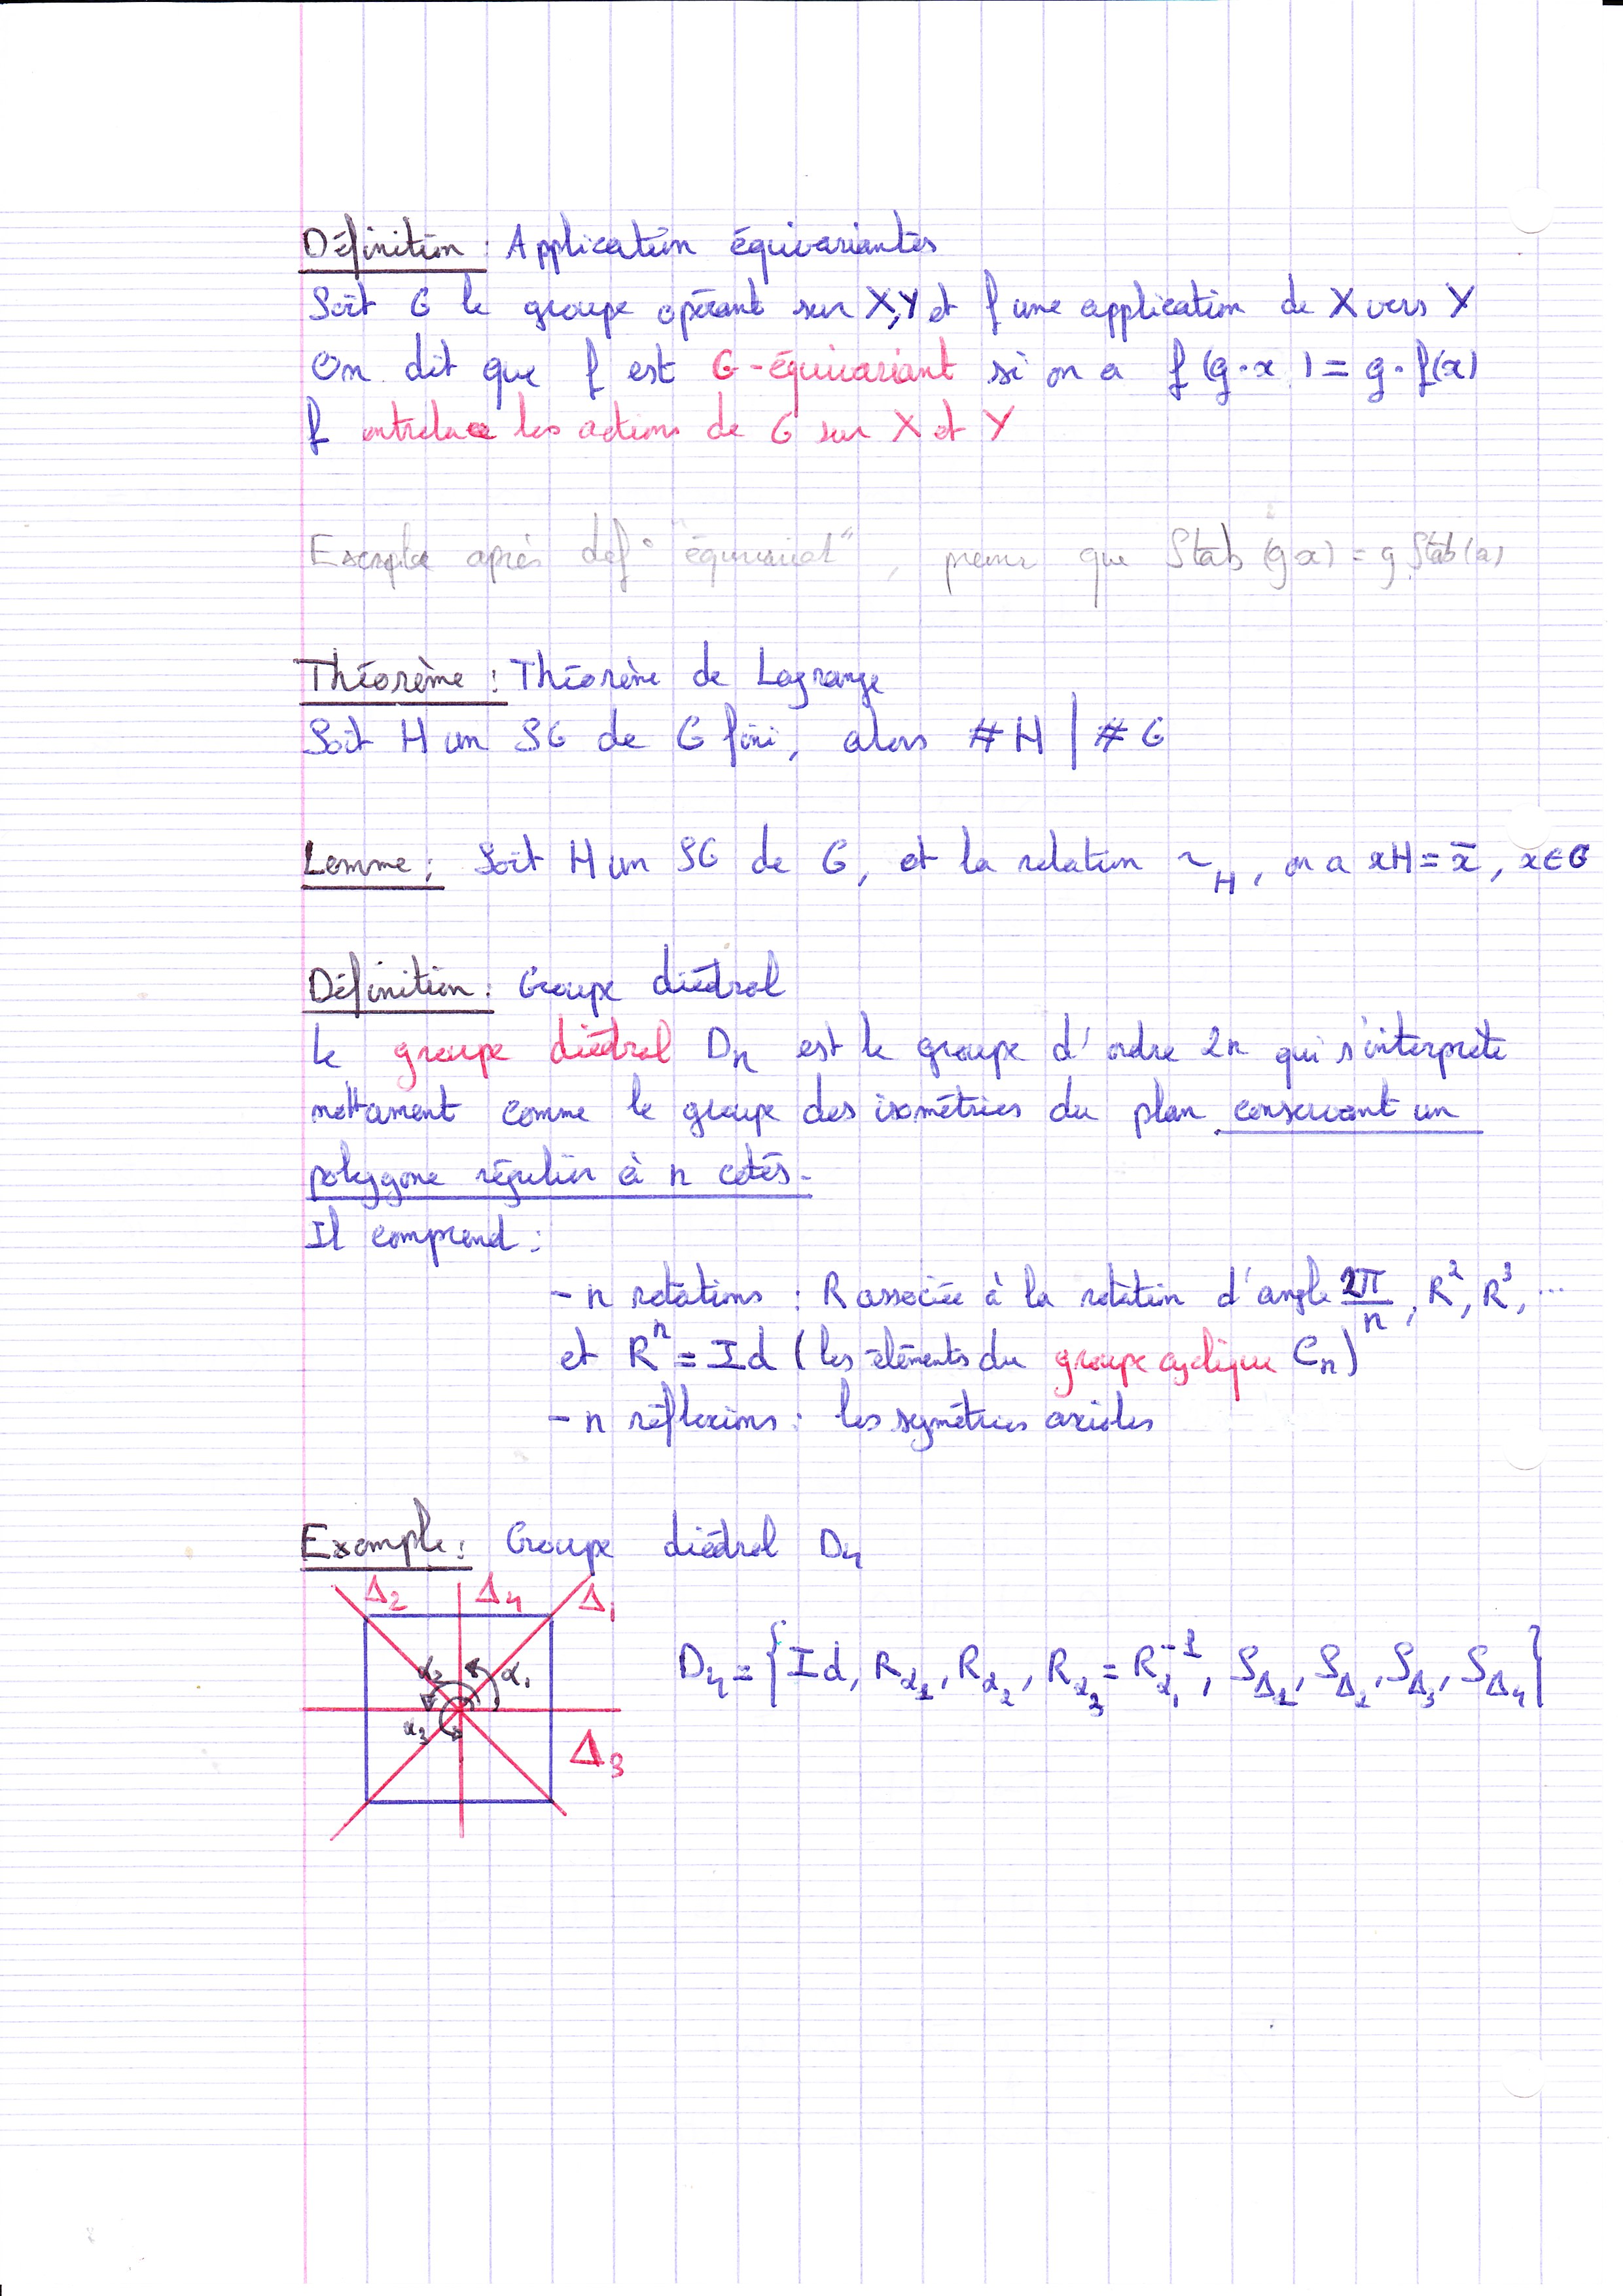 Définition : Application équivariantes
Soit G le groupe opérant sur X,Y et f une application de X vers Y
On dit que f est G-équivariant si on a f(g·x) = g·f(x)
f entrelace les actions de G sur X et Y
Exemple après def° "équivariat", preuv que Stab(gx) = g Stab(x)
Théorème : Théorème de Lagrange
Soit H un SG de G fini, alors #H | #G
Lemme : Soit H un SG de G, et la relation ~_H, on a xH = x̄, x∈G
Définition : Groupe diédral
Le groupe diédral Dn est le groupe d'ordre 2n qui s'interprète
nottament comme le groupe des isométries du plan conservant un
polygone régulier à n cotés.
Il comprend :
- n rotations : R associée à la rotation d'angle 2π/n, R², R³, ...
et Rⁿ = Id (les éléments du groupe cyclique Cn)
- n réflexions : les symétries axiales
Exemple : Groupe diédral D4
Δ2 Δ4 Δ1
α2 α1
D4 = {Id, Rα1, Rα2, Rα3 = Rα1⁻¹, SΔ1, SΔ2, SΔ3, SΔ4}
α3
Δ3